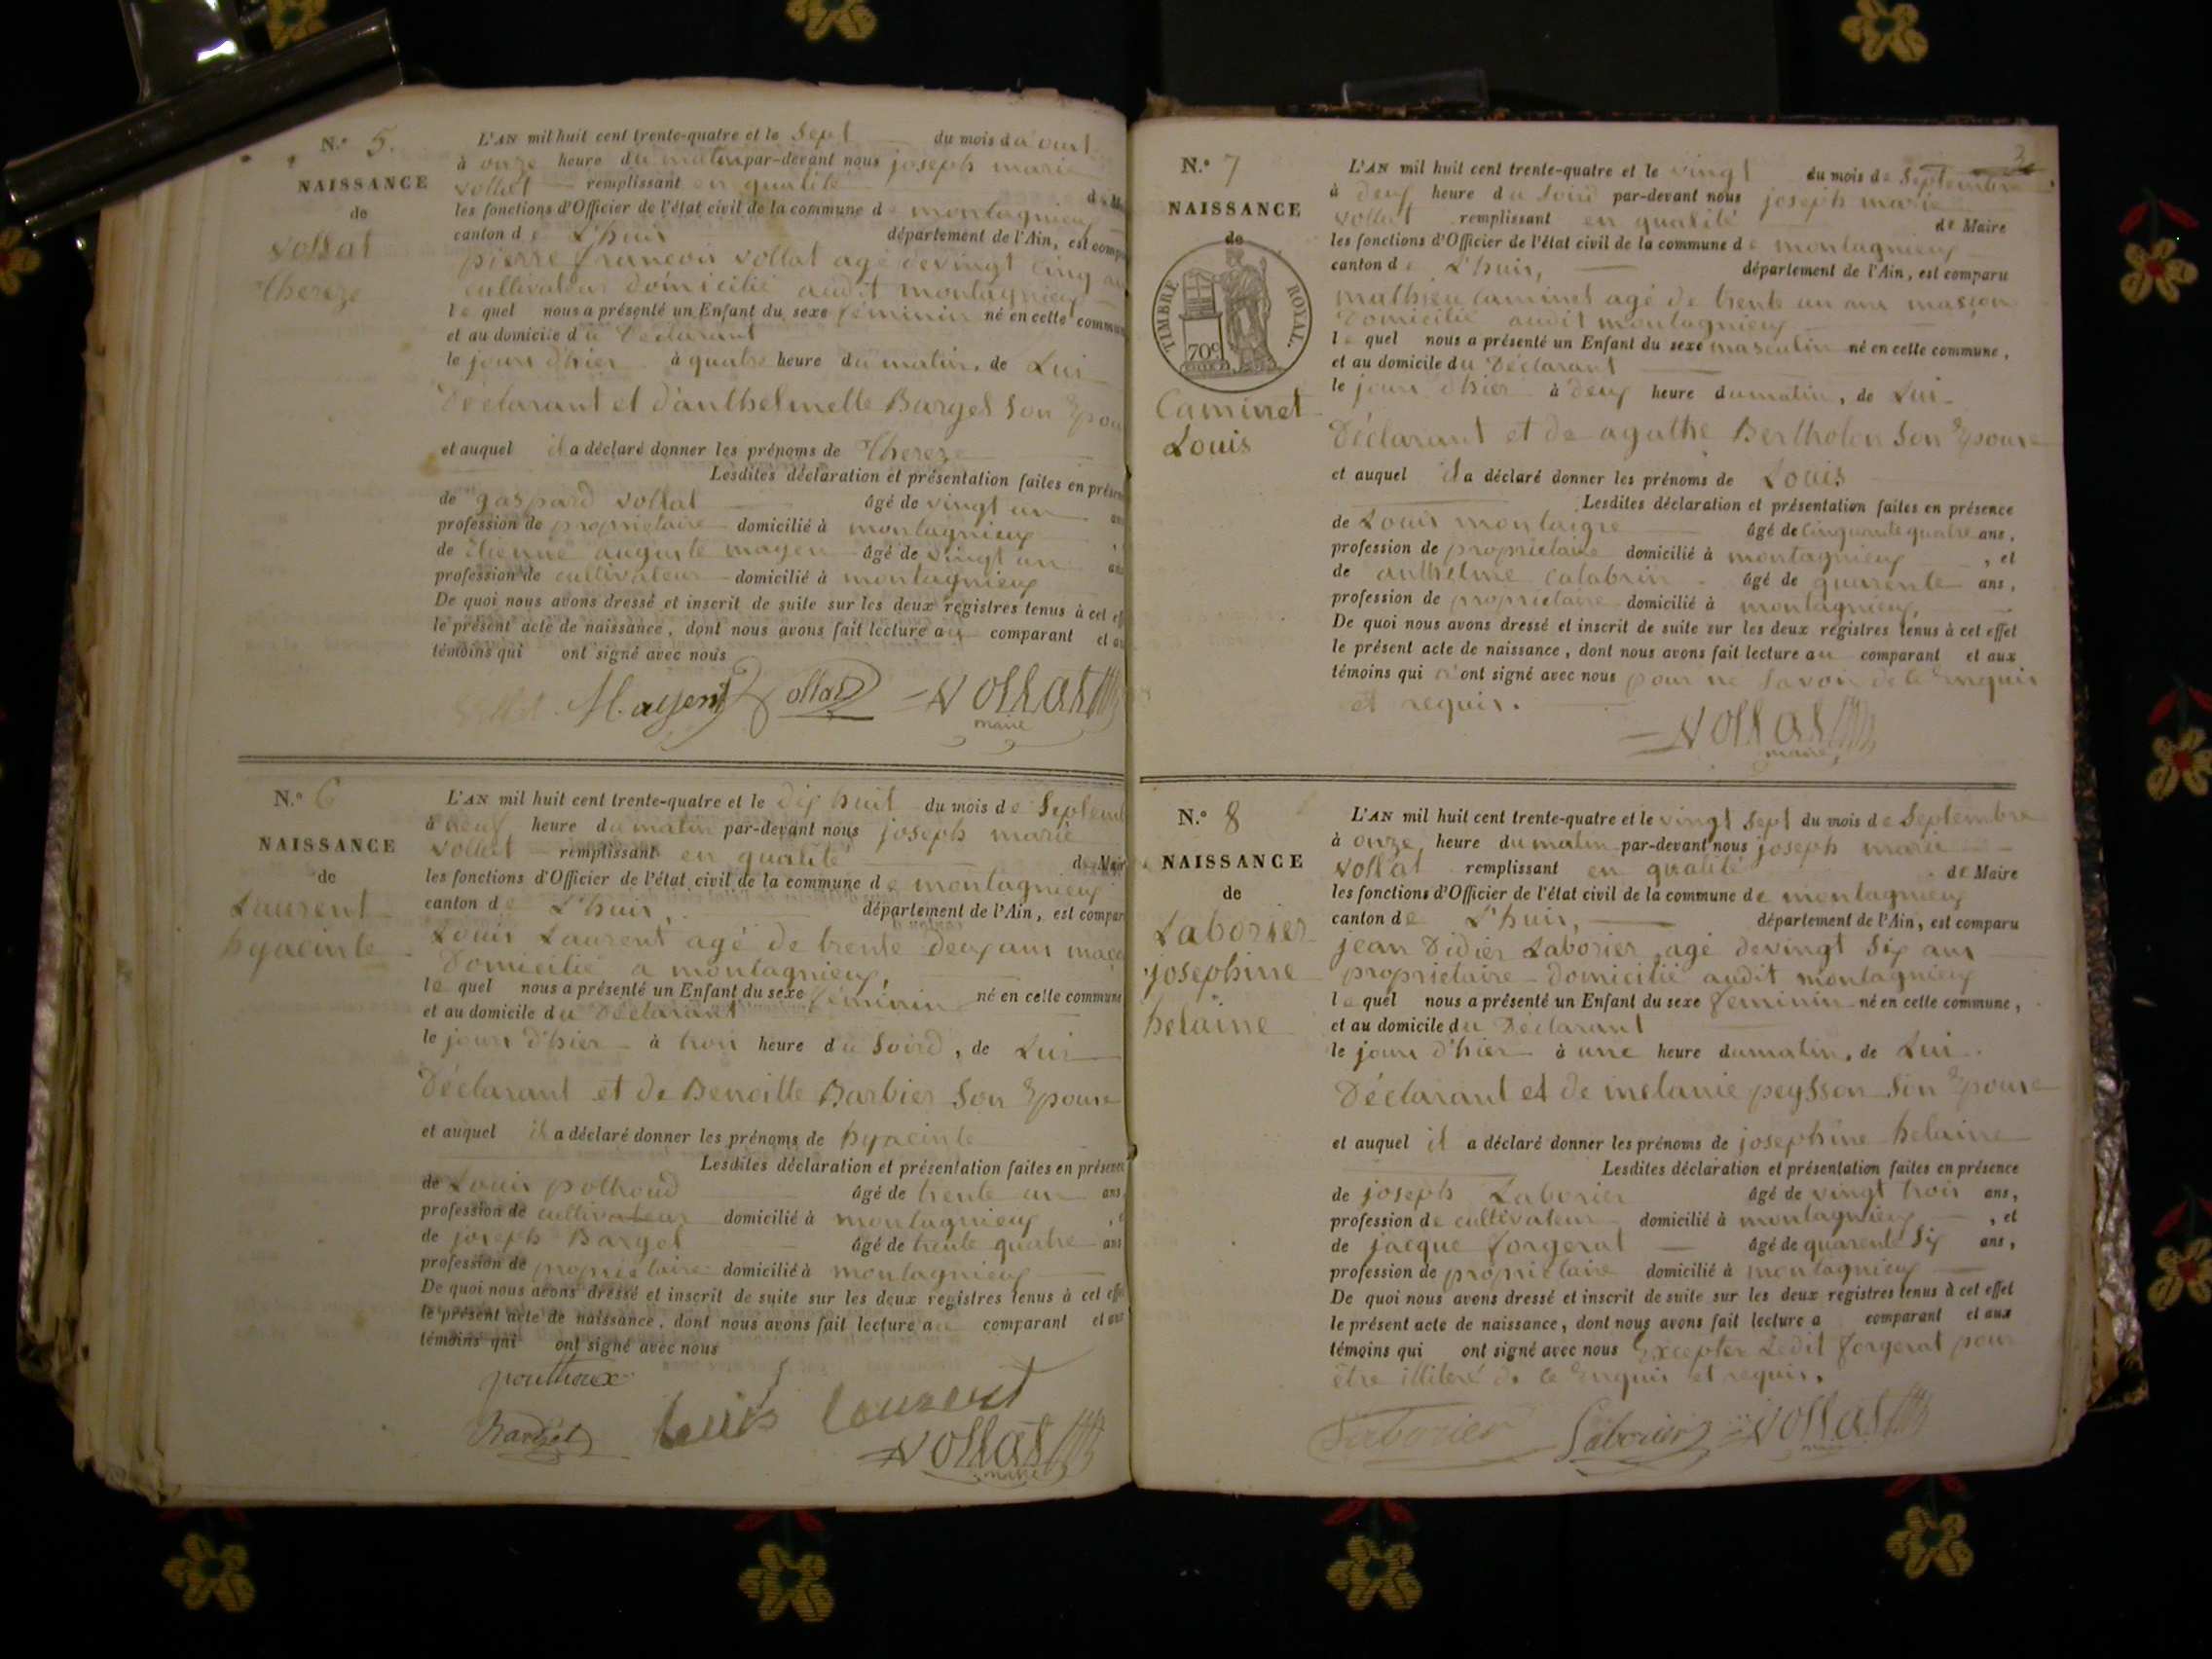 N.° 5.
NAISSANCE
de
vollat
Thereze
L'AN mil huit cent trente-quatre et le Sept du mois d'août
à onze heure du matin par-devant nous joseph marie
vollat remplissant en qualité de
les fonctions d'Officier de l'état civil de la commune de montagnieux
canton de L'huis département de l'Ain, est comp
pierre francois vollat agé de vingt cinq
cultivateur domicilié audit montagnieux
le quel nous a présenté un Enfant du sexe féminin né en cette commun
et au domicile du Déclarant
le jours d'hier à quatre heure du matin, de Lui
Déclarant et d'anthelmette Barget Son Epou
et auquel il a déclaré donner les prénoms de Thereze
Lesdites déclaration et présentation faites en présen
de gaspard vollat âgé de vingt un ans
profession de proprietaire domicilié à montagnieux
de Etienne auguste mayen âgé de vingt un ans
profession de cultivateur domicilié à montagnieux
De quoi nous avons dressé et inscrit de suite sur les deux registres tenus à cet ef
le présent acte de naissance, dont nous avons fait lecture au comparant et au
témoins qui ont signé avec nous
Vollat vollat
maire
N.° 6
NAISSANCE
de
Laurent
hyacinte
L'AN mil huit cent trente-quatre et le dix huit du mois de Septemb
à neuf heure du matin par-devant nous joseph marie
vollat remplissant en qualité de Mair
les fonctions d'Officier de l'état civil de la commune de montagnieux
canton de L'huis, département de l'Ain, est compar
Louis Laurent agé de trente deux ans maço
Domicilié a montagnieux,
le quel nous a présenté un Enfant du sexe féminin né en cette commune
et au domicile du Déclarant
le jours d'hier à trois heure du Soird, de Lui
Déclarant et de Benoitte Barbier Son Epouse
et auquel il a déclaré donner les prénoms de hyacinte
Lesdites déclaration et présentation faites en présenc
de Louis pothoud âgé de trente un ans,
profession de cultivateur domicilié à montagnieux
de joseph Barget âgé de trente quatre ans
profession de proprietaire domicilié à montagnieux
De quoi nous avons dressé et inscrit de suite sur les deux registres tenus à cet eff
le présent acte de naissance, dont nous avons fait lecture au comparant et aux
témoins qui ont signé avec nous
Barget Louis Laurent
vollat
maire
N.° 7
NAISSANCE
de
TIMBRE ROYAL.
70c
Caminet
Louis
L'AN mil huit cent trente-quatre et le vingt du mois de Septembre
à deux heure du Soird par-devant nous joseph marie
vollat remplissant en qualité de Maire
les fonctions d'Officier de l'état civil de la commune de montagnieux
canton de L'huis, département de l'Ain, est comparu
mathieu Caminet agé de trente un ans maçon
Domicilié audit montagnieux
le quel nous a présenté un Enfant du sexe masculin né en cette commune,
et au domicile du Déclarant
le jours d'hier à deux heure du matin, de Lui
Déclarant et de agathe Bertholon Son Epouse
et auquel il a déclaré donner les prénoms de Louis
Lesdites déclaration et présentation faites en présence
de Louis montaigre âgé de Cinquante quatre ans,
profession de proprietaire domicilié à montagnieux, et
de anthelme calabrin âgé de quarente ans,
profession de proprietaire domicilié à montagnieux,
De quoi nous avons dressé et inscrit de suite sur les deux registres tenus à cet effet
le présent acte de naissance, dont nous avons fait lecture au comparant et aux
témoins qui n'ont signé avec nous pour ne Savoir de ce Enquis
et requis.
vollat
maire
N.° 8
NAISSANCE
de
Laborier
josephine
helaine
L'AN mil huit cent trente-quatre et le vingt Sept du mois de Septembre
à onze heure du matin par-devant nous joseph marie
vollat remplissant en qualité de Maire
les fonctions d'Officier de l'état civil de la commune de montagnieux
canton de L'huis, département de l'Ain, est comparu
jean Didier Laborier agé de vingt Six ans
proprietaire Domicilié audit montagnieux
le quel nous a présenté un Enfant du sexe feminin né en cette commune,
et au domicile du Déclarant
le jours d'hier à une heure du matin, de Lui
Déclarant et de melanie peysson Son Epouse
et auquel il a déclaré donner les prénoms de josephine helaine
Lesdites déclaration et présentation faites en présence
de joseph Laborier âgé de vingt trois ans,
profession de cultivateur domicilié à montagnieux, et
de jacque forgerat âgé de quarente Six ans,
profession de proprietaire domicilié à montagnieux
De quoi nous avons dressé et inscrit de suite sur les deux registres tenus à cet effet
le présent acte de naissance, dont nous avons fait lecture a comparant et aux
témoins qui ont signé avec nous Excepter Ledit forgerat pour
être illitéré de ce Enquis et requis.
Laborier Laborier vollat